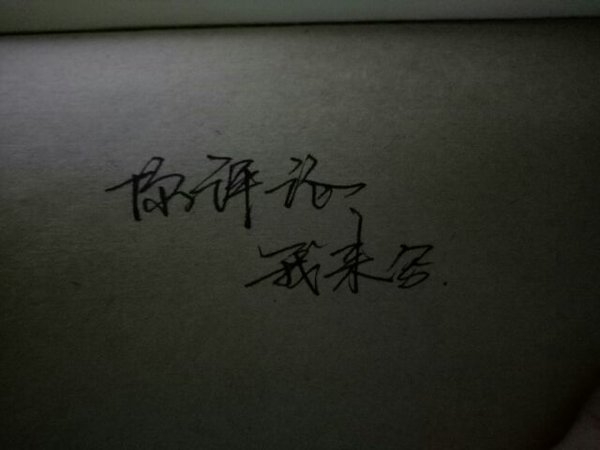 你评论,
我来写.